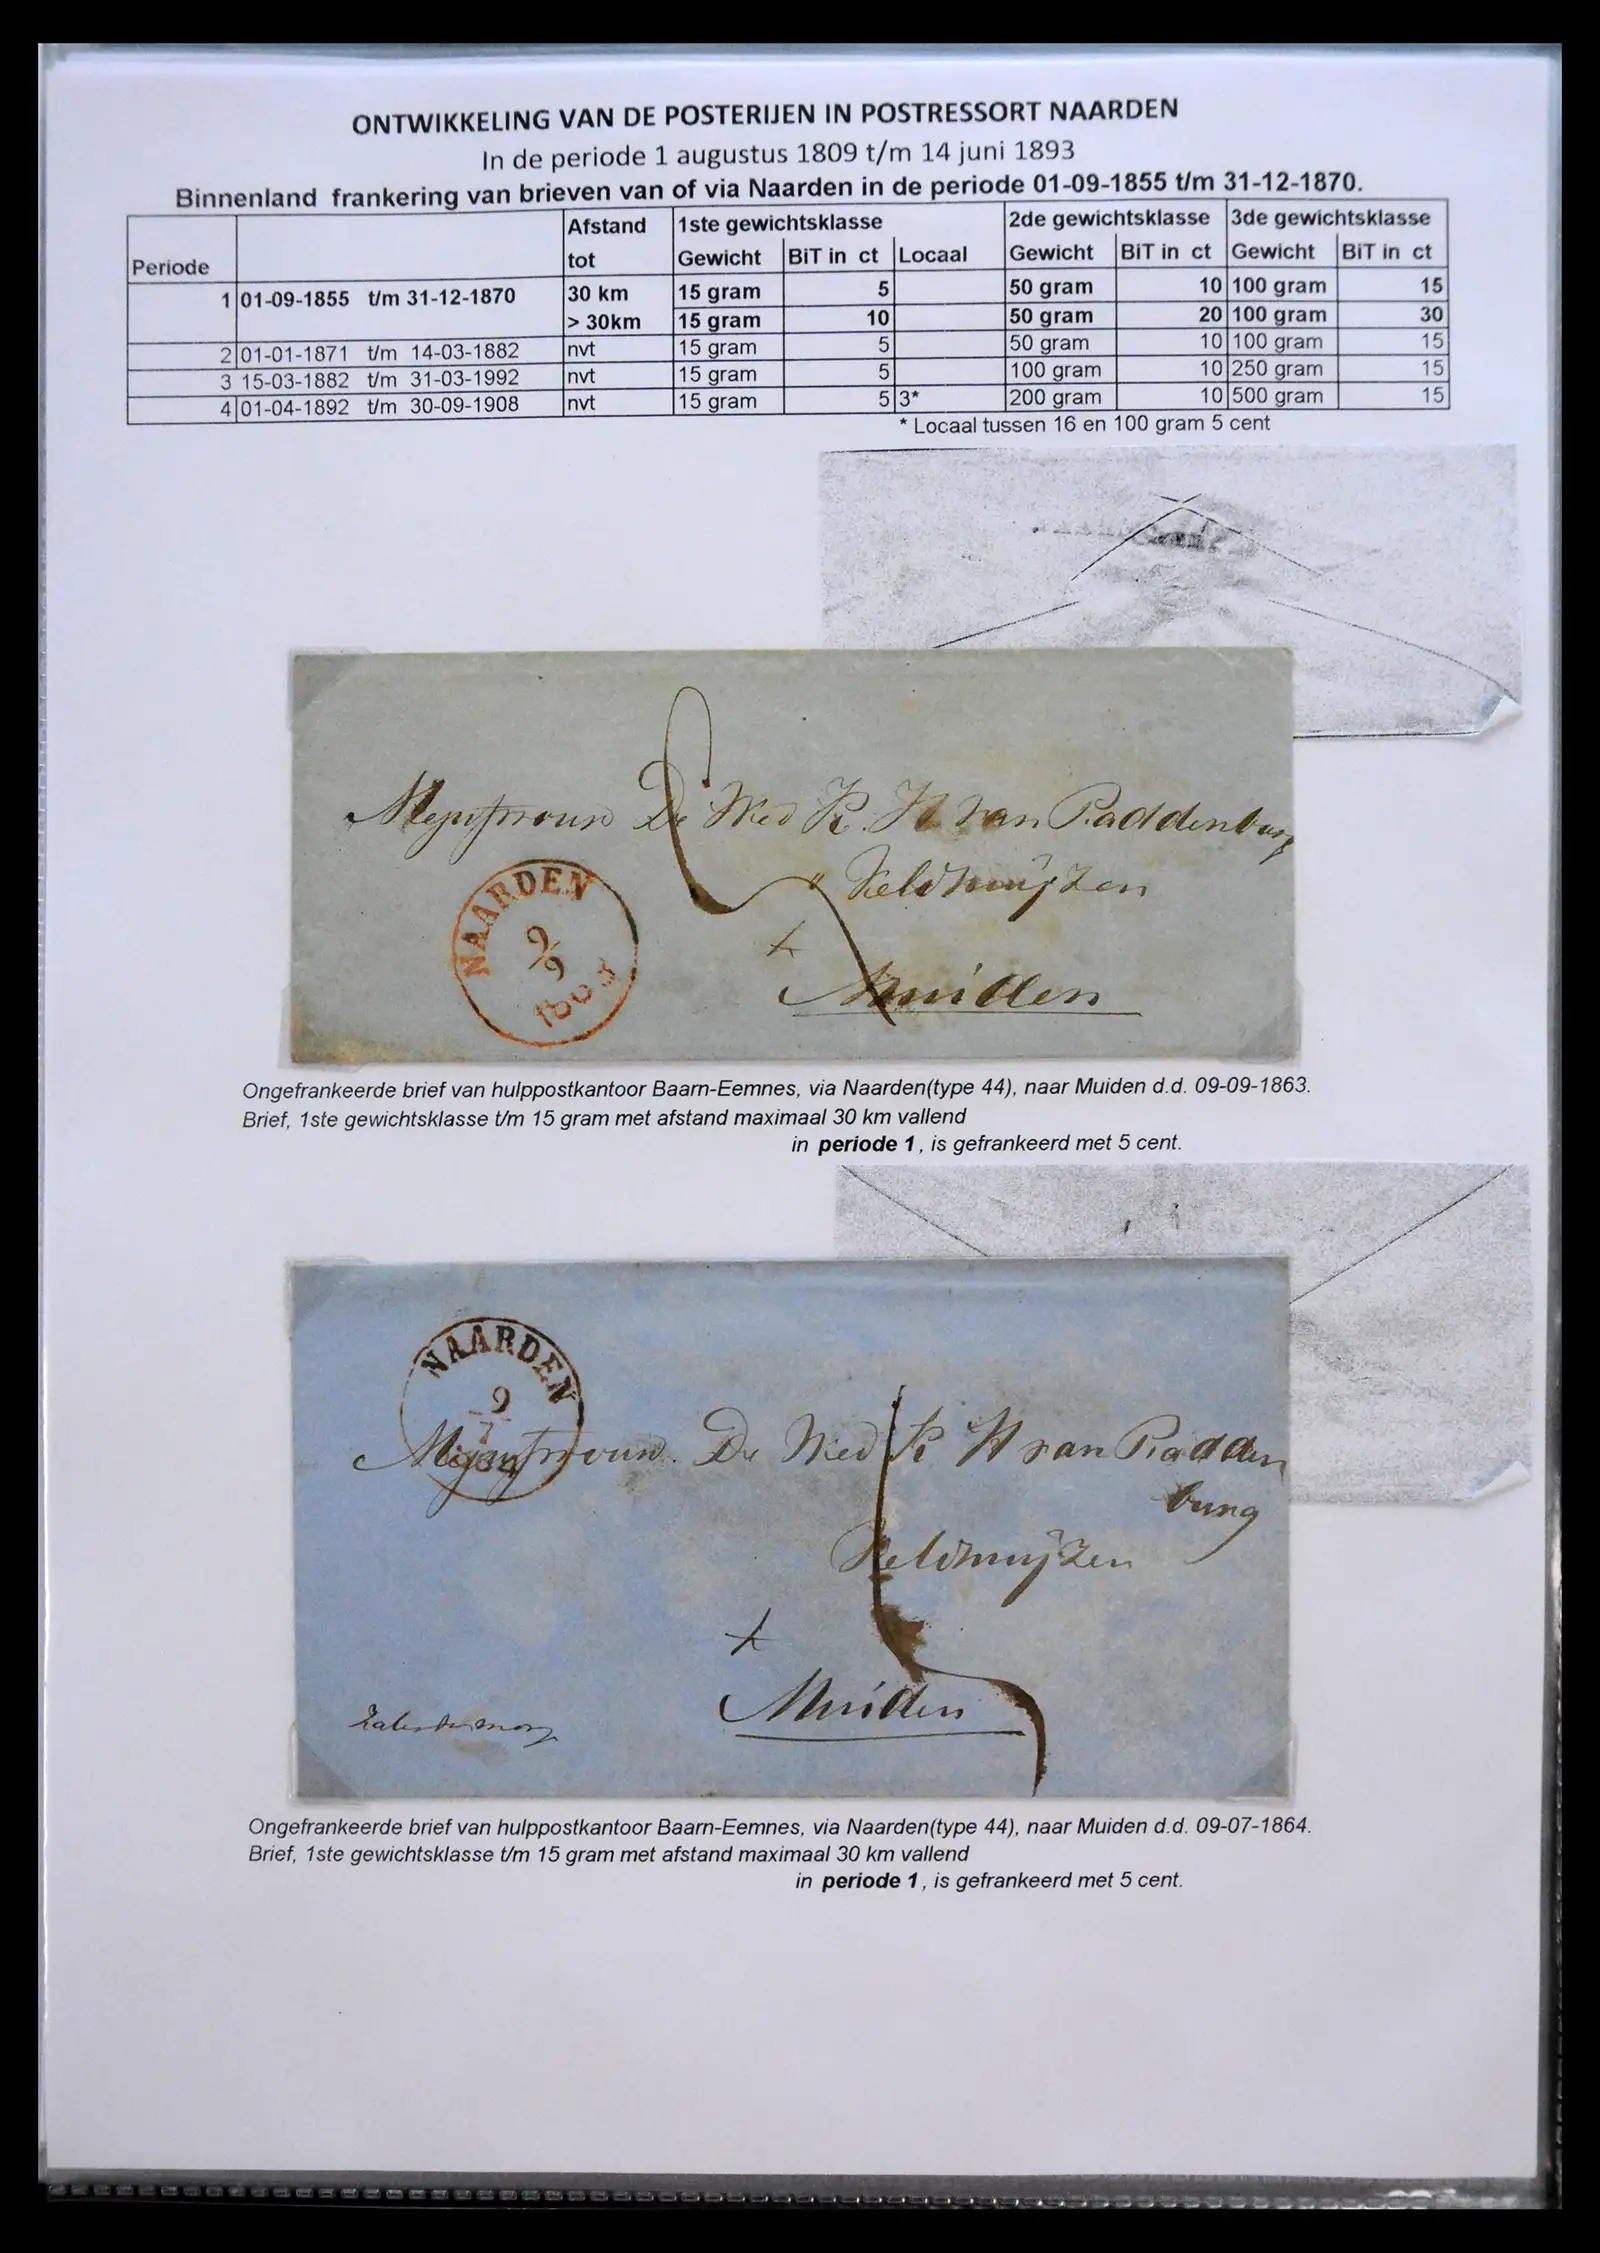 ONTWIKKELING VAN DE POSTERIJEN IN POSTRESSORT NAARDEN
In de periode 1 augustus 1809 t/m 14 juni 1893
Binnenland frankering van brieven van of via Naarden in de periode 01-09-1855 t/m 31-12-1870.
Afstand 1ste gewichtsklasse 2de gewichtsklasse 3de gewichtsklasse
Periode tot Gewicht BiT in ct Locaal Gewicht BiT in ct Gewicht BiT in ct
1 01-09-1855 t/m 31-12-1870 30 km 15 gram 5 50 gram 10 100 gram 15
> 30km 15 gram 10 50 gram 20 100 gram 30
2 01-01-1871 t/m 14-03-1882 nvt 15 gram 5 50 gram 10 100 gram 15
3 15-03-1882 t/m 31-03-1992 nvt 15 gram 5 100 gram 10 250 gram 15
4 01-04-1892 t/m 30-09-1908 nvt 15 gram 5 3* 200 gram 10 500 gram 15
* Locaal tussen 16 en 100 gram 5 cent
De Wed K. H van Raddenburg
Veldhuijzen
Muiden
NAARDEN
9/9
1863
Ongefrankeerde brief van hulppostkantoor Baarn-Eemnes, via Naarden(type 44), naar Muiden d.d. 09-09-1863.
Brief, 1ste gewichtsklasse t/m 15 gram met afstand maximaal 30 km vallend
in periode 1, is gefrankeerd met 5 cent.
NAARDEN
9
7
1864
De Wed K H van Radden
burg
Veldhuijzen
Muiden
Ongefrankeerde brief van hulppostkantoor Baarn-Eemnes, via Naarden(type 44), naar Muiden d.d. 09-07-1864.
Brief, 1ste gewichtsklasse t/m 15 gram met afstand maximaal 30 km vallend
in periode 1, is gefrankeerd met 5 cent.